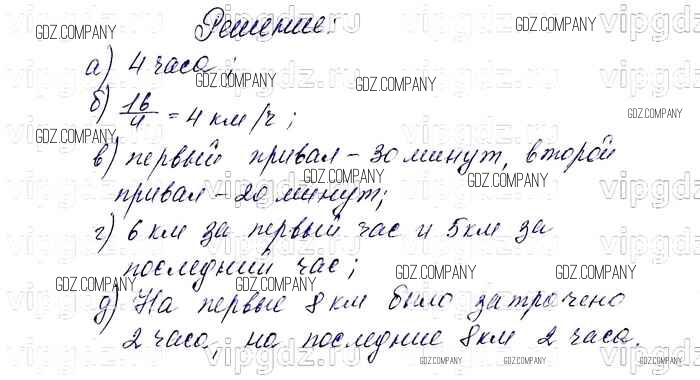 Решение:
GDZ.COMPANY GDZ.COMPANY
а) 4 часа;
GDZ.COMPANY
б) 16/4 = 4 км/ч;
GDZ.COMPANY
GDZ.COMPANY
в) первый привал – 30 минут, второй
GDZ.COMPANY GDZ.COMPANY
привал – 20 минут;
г) 6 км за первый час и 5 км за
GDZ.COMPANY GDZ.COMPANY
последний час;
GDZ.COMPANY GDZ.COMPANY GDZ.COMPANY
д) На первые 8 км было затрачено
2 часа, на последние 8 км 2 часа.
GDZ.COMPANY GDZ.COMPANY GDZ.COMPANY
vipgdz.ru